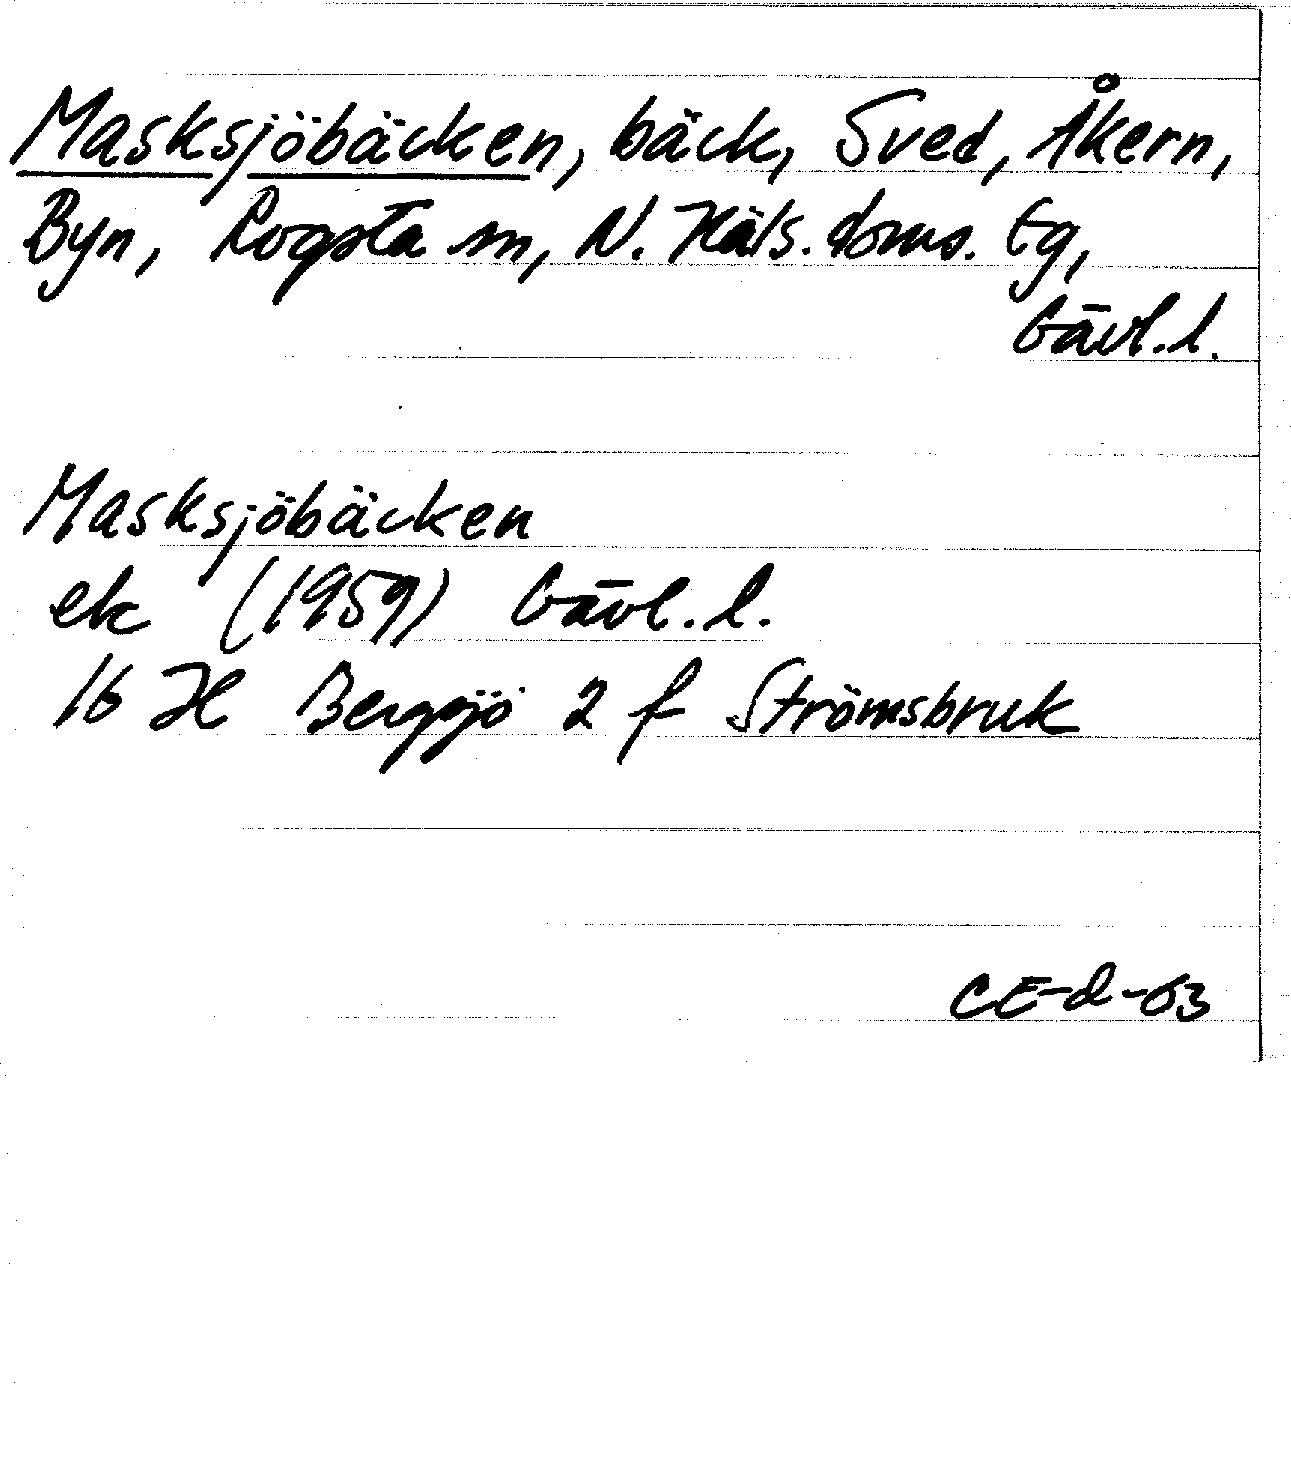 Masksjöbäcken, bäck, Sved, Åkern,
Byn, Rogsta sn, N. Häls. doms. tg,
Gävl. l.
Masksjöbäcken
ek (1959) Gävl. l.
16 H Bergsjö 2 f Strömsbruk
CE-d-63